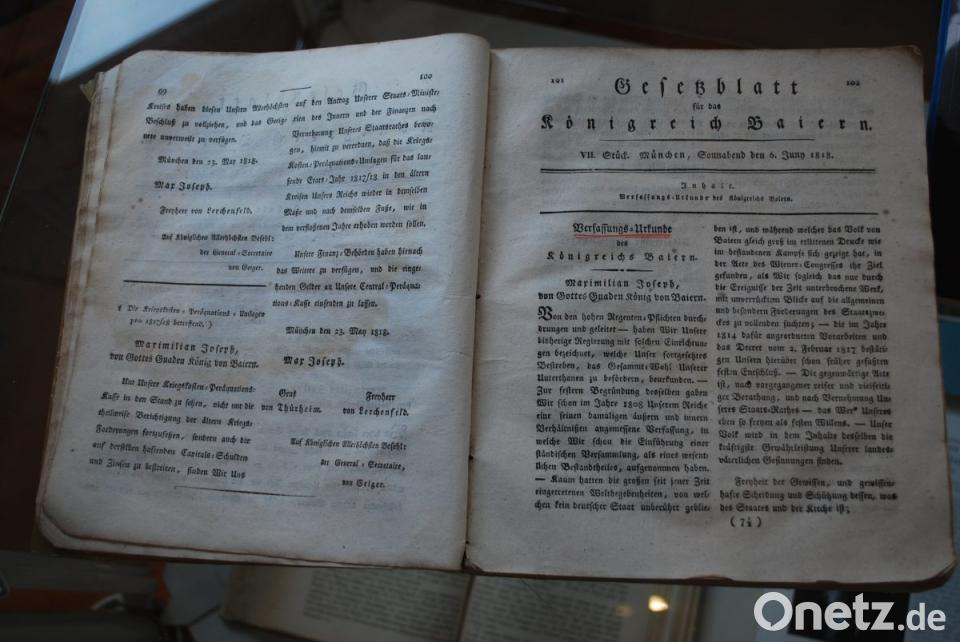 99
Kreises haben diesen Unsern Allerhöchsten
Beschluß zu vollziehen, und das Geeig-
nete unverweilt zu verfügen.
München den 23. May 1818.
Max Joseph.
Freyherr von Lerchenfeld.
Auf Königlichen Allerhöchsten Befehl:
der General-Secretaire
von Geiger.
(Die Kriegskosten-Peräquations-Umlagen
pro 1817/18 betreffend.)
Maximilian Joseph,
von Gottes Gnaden König von Baiern.
Um Unsere Kriegskosten-Peräquations-
Kasse in den Stand zu setzen, nicht nur die
theilweise Berichtigung der ältern Kriegs-
Forderungen fortzusetzen, sondern auch die
auf derselben haftenden Capitals-Schulden
und Zinsen zu bestreiten, finden Wir Uns
100
auf den Antrag Unserer Staats-Ministe-
rien des Innern und der Finanzen nach
Vernehmung Unseres Staatsrathes bewo-
gen, hiemit zu verordnen, daß die Kriegs-
Kosten-Peräquations-Umlagen für das lau-
fende Etats-Jahr 1817/18 in den ältern
Kreisen Unsers Reichs wieder in demselben
Maße und nach demselben Fuße, wie in
dem verflossenen Jahre erhoben werden sollen.
Unsere Finanz-Behörden haben hienach
das Weitere zu verfügen, und die einge-
henden Gelder an Unsere Central-Peräqua-
tions-Kasse einsenden zu lassen.
München den 23. May 1818.
Max Joseph.
Graf von Thürheim. Freyherr von Lerchenfeld.
Auf Königlichen Allerhöchsten Befehl:
der General-Secretaire,
von Geiger.
101 102
Gesetzblatt
für das
Königreich Baiern.
VII. Stück. München, Sonnabend den 6. Juny 1818.
Inhalt.
Verfassungs-Urkunde des Königreichs Baiern.
Verfassungs-Urkunde
des
Königreichs Baiern.
Maximilian Joseph,
von Gottes Gnaden König von Baiern.
Von den hohen Regenten-Pflichten durch-
drungen und geleitet — haben Wir Unsere
bisherige Regierung mit solchen Einrichtun-
gen bezeichnet, welche Unser fortgesetztes
Bestreben, das Gesammt-Wohl Unserer
Unterthanen zu befördern, beurkunden. —
Zur festern Begründung desselben gaben
Wir schon im Jahre 1808 Unserem Reiche
eine seinen damaligen äußern und innern
Verhältnißen angemessene Verfassung, in
welche Wir schon die Einführung einer
ständischen Versammlung, als eines wesent-
lichen Bestandtheiles, aufgenommen haben.
— Kaum hatten die großen seit jener Zeit
eingetretenen Weltbegebenheiten, von wel-
chen kein deutscher Staat unberührt geblie-
ben ist, und während welcher das Volk von
Baiern gleich groß im erlittenen Drucke wie
im bestandenen Kampfe sich gezeigt hat, in
der Acte des Wiener-Congresses ihr Ziel
gefunden, als Wir sogleich das nur durch
die Ereignisse der Zeit unterbrochene Werk,
mit unverrücktem Blicke auf die allgemeinen
und besondern Forderungen des Staatszwe-
ckes zu vollenden suchten; — die im Jahr
1814 dafür angeordneten Vorarbeiten und
das Decret vom 2. Februar 1817 bestäti-
gen Unsern hierüber schon früher gefaßten
festen Entschluß. — Die gegenwärtige Acte
ist, nach vorgegangener reifer und vielseitif-
ger Berathung, und nach Vernehmung Un-
seres Staats-Rathes — das Werk Unseres
eben so freyen als festen Willens. — Unser
Volk wird in dem Inhalte desselben die
kräftigste Gewährleistung Unserer landes-
väterlichen Gesinnungen finden.
Freyheit der Gewissen, und gewissen-
hafte Scheidung und Schützung dessen, was
des Staates und der Kirche ist;
(7½)
Onetz.de